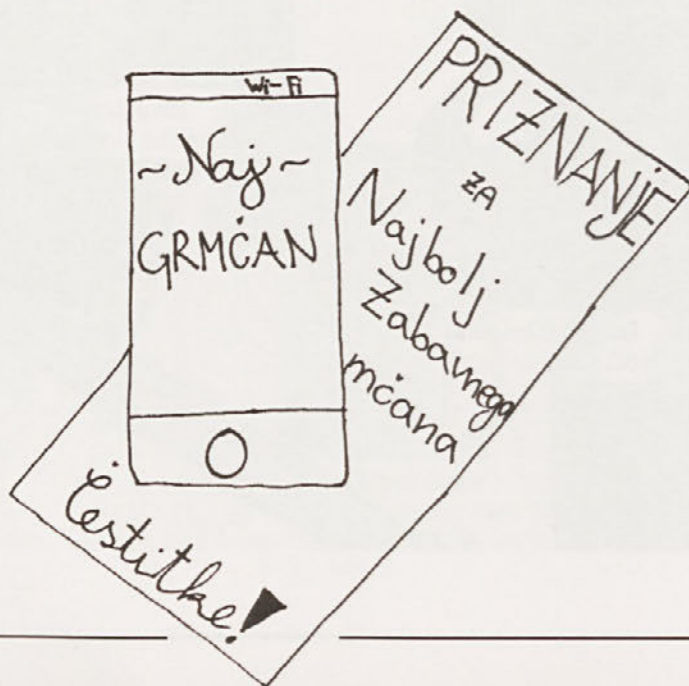 Wi-Fi
~Naj~
GRMČAN
PRIZNANJE
ZA
Najbolj
Zabavnega
mčana
Čestitke!